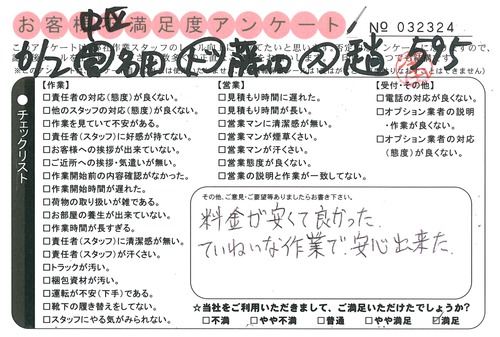 お客様満足度アンケート
No 032324
チェックリスト
【作業】
□責任者の対応(態度)が良くない。
□他のスタッフの対応(態度)が良くない。
□作業を見ていて不安がある。
□責任者(スタッフ)に好感が持てない。
□お客様への挨拶が出来ていない。
□ご近所への挨拶・気遣いが無い。
□作業開始前の内容確認がなかった。
□作業開始時間が遅れた。
□荷物の取り扱いが雑である。
□お部屋の養生が出来ていない。
□作業時間が長すぎる。
□責任者(スタッフ)に清潔感が無い。
□責任者(スタッフ)が汗くさい。
□トラックが汚い。
□梱包資材が汚い。
□運転が不安(下手)である。
□靴下の履き替えをしてない。
□スタッフにやる気がみられない。
【営業】
□見積もり時間に遅れた。
□見積もり時間が長い。
□営業マンに清潔感が無い。
□営業マンが煙草くさい。
□営業マンが汗くさい。
□営業態度が良くない。
□営業の説明と作業が一致してない。
【受付・その他】
□電話の対応が良くない。
□オプション業者の説明
・作業が良くない。
□オプション業者の対応
(態度)が良くない。
その他、ご意見・ご要望等ありましたらお書き下さい。
料金が安くて良かった。
ていねいな作業で安心出来た。
☆当社をご利用いただきまして、ご満足いただけたでしょうか?
□不満 □やや不満 □普通 □やや満足 ☑満足